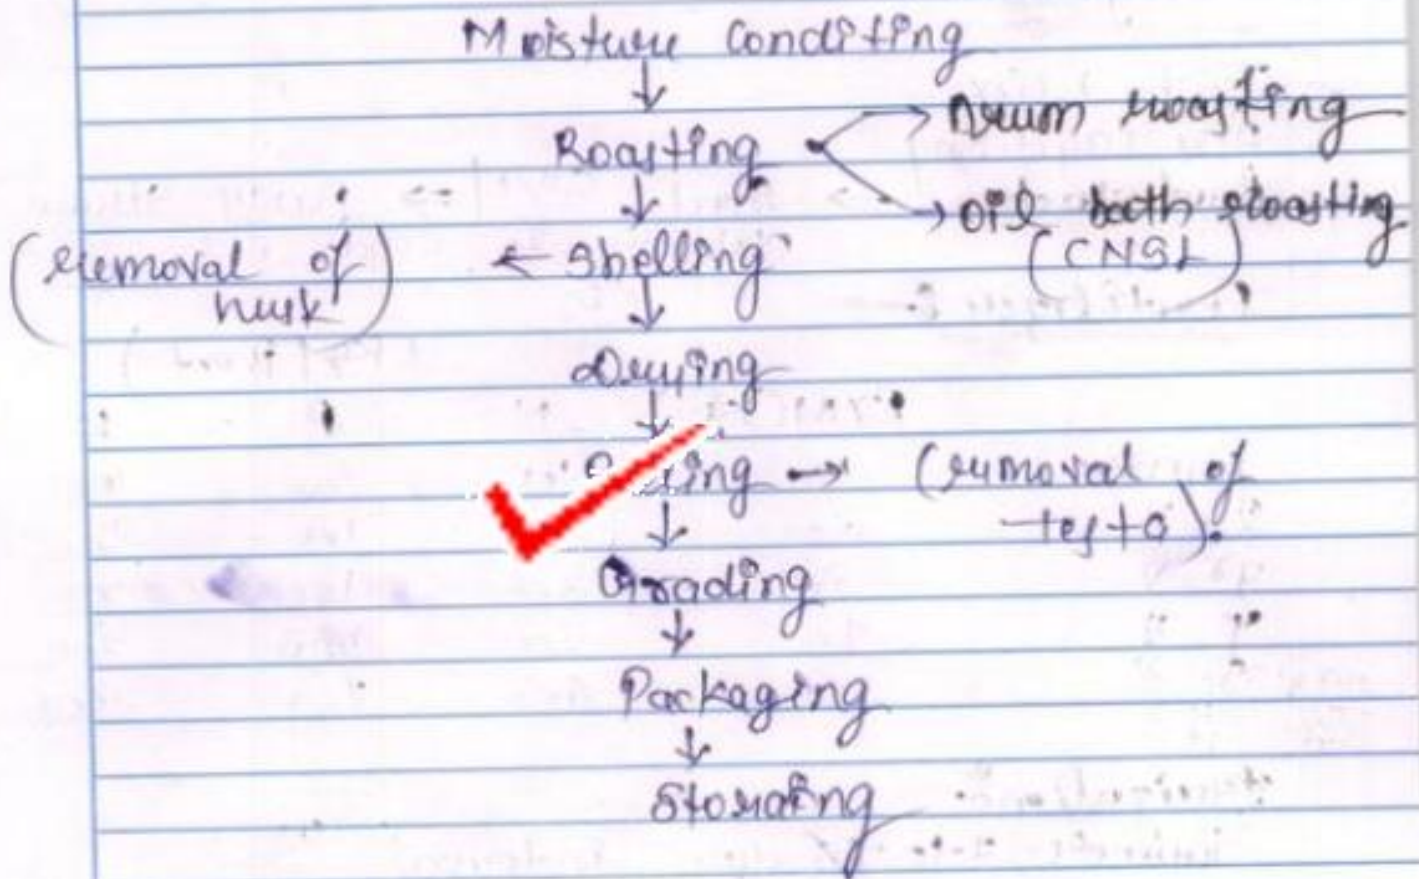 Moisture Conditing
↓
Roasting → Drum roasting
↓ → Oil bath roasting
(removal of husk) ← Shelling (CNSL)
↓
Drying
↓
→ (removal of testa).
↓
Grading
↓
Packaging
↓
Storaing